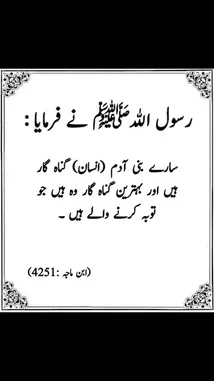 رسول اللہ ﷺ نے فرمایا :
سارے بنی آدم (انسان) گناہ گار
ہیں اور بہترین گناہ گار وہ ہیں جو
توبہ کرنے والے ہیں ۔
(ابن ماجہ :4251)